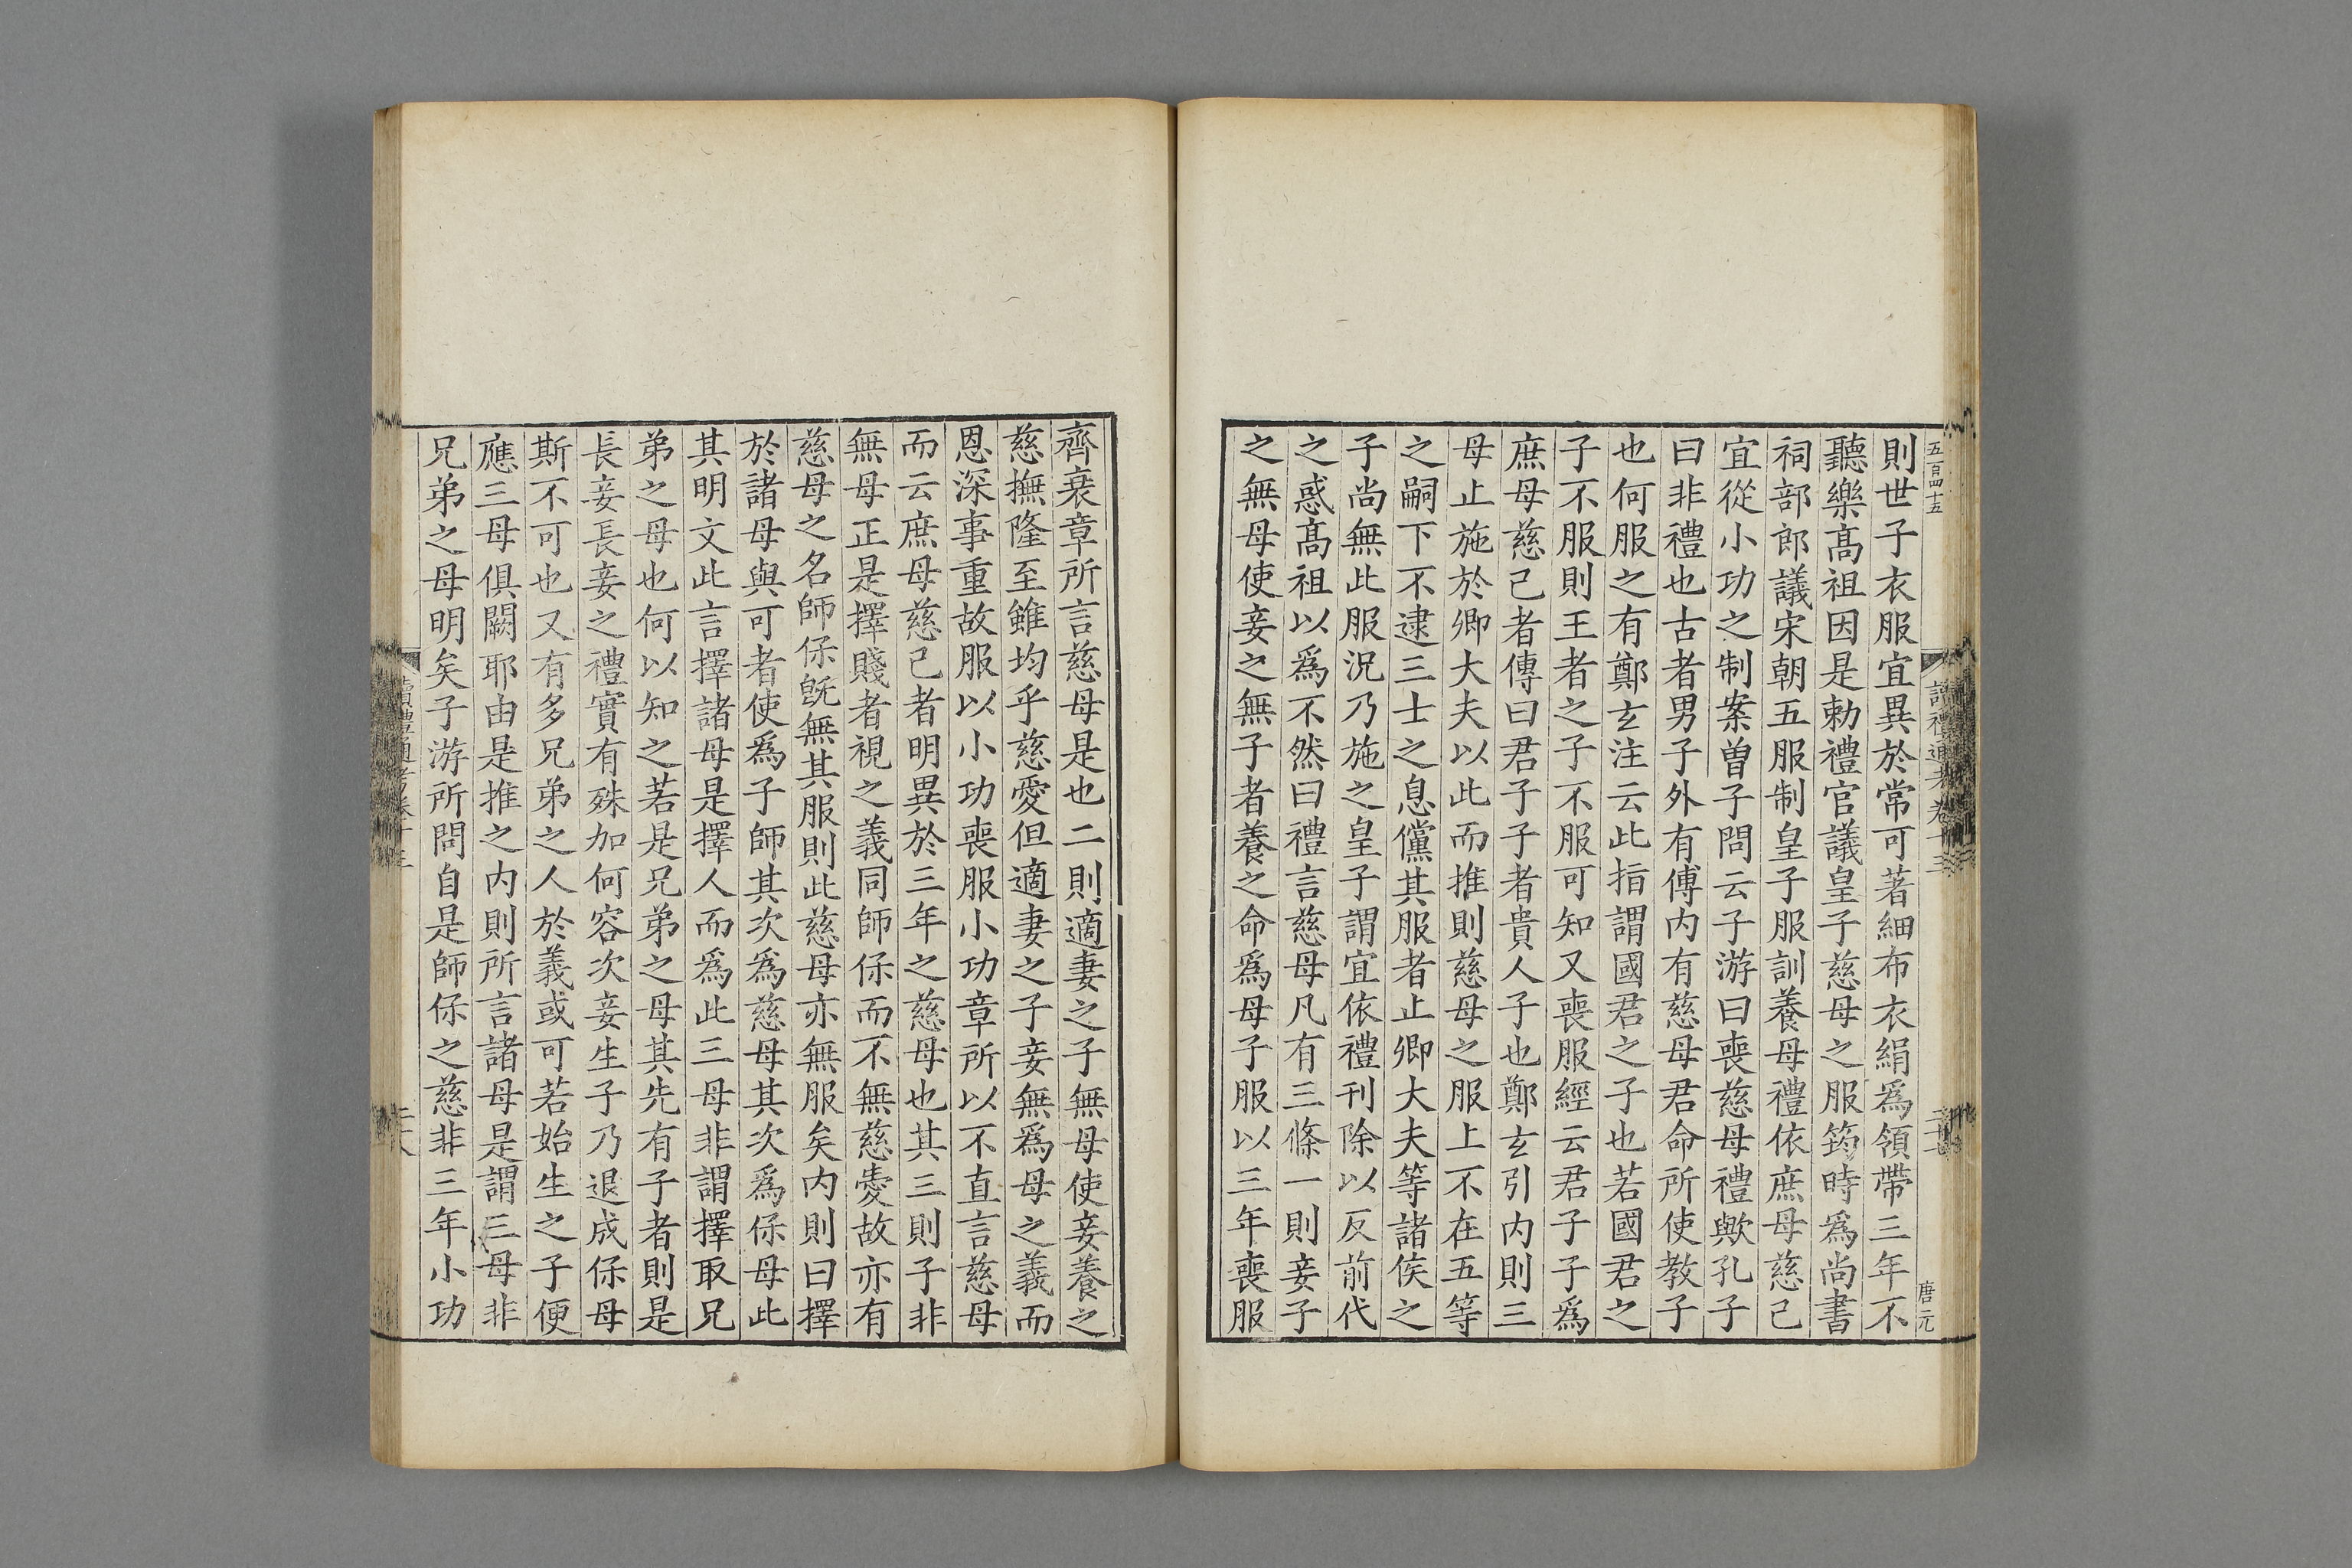 五百四十五
讀禮通考卷十三
二十七
唐元
則世子衣服宜異於常可著細布衣絹爲領帶三年不
聽樂高祖因是勅禮官議皇子慈母之服筠時爲尚書
祠部郎議宋朝五服制皇子服訓養母禮依庶母慈己
宜從小功之制案曽子問云子游曰喪慈母禮歟孔子
曰非禮也古者男子外有傅内有慈母君命所使教子
也何服之有鄭玄注云此指謂國君之子也若國君之
子不服則王者之子不服可知又喪服經云君子子爲
庶母慈己者傳曰君子子者貴人子也鄭玄引内則三
母止施於卿大夫以此而推則慈母之服上不在五等
之嗣下不逮三士之息儻其服者止卿大夫等諸侯之
子尚無此服況乃施之皇子謂宜依禮刊除以反前代
之惑高祖以爲不然曰禮言慈母凡有三條一則妾子
之無母使妾之無子者養之命爲母子服以三年喪服
齊衰章所言慈母是也二則適妻之子無母使妾養之
慈撫隆至雖均乎慈愛但適妻之子妾無爲母之義而
恩深事重故服以小功喪服小功章所以不直言慈母
而云庶母慈己者明異於三年之慈母也其三則子非
無母正是擇賤者視之義同師保而不無慈愛故亦有
慈母之名師保旣無其服則此慈母亦無服矣内則曰擇
於諸母與可者使爲子師其次爲慈母其次爲保母此
其明文此言擇諸母是擇人而爲此三母非謂擇取兄
弟之母也何以知之若是兄弟之母其先有子者則是
長妾長妾之禮實有殊加何容次妾生子乃退成保母
斯不可也又有多兄弟之人於義或可若始生之子便
應三母俱闕耶由是推之内則所言諸母是謂三母非
兄弟之母明矣子游所問自是師保之慈非三年小功
讀禮通考卷十三
二十八